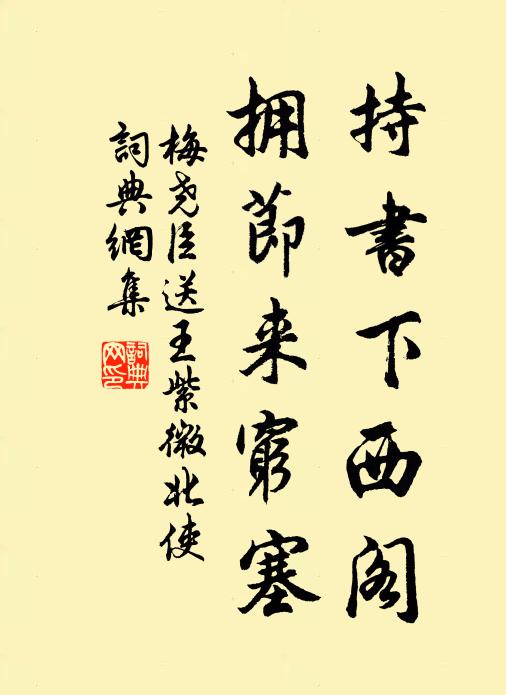 持書下西阁
拥節来窮塞
梅尧臣送王紫微北使
詞典網集
詞典网印